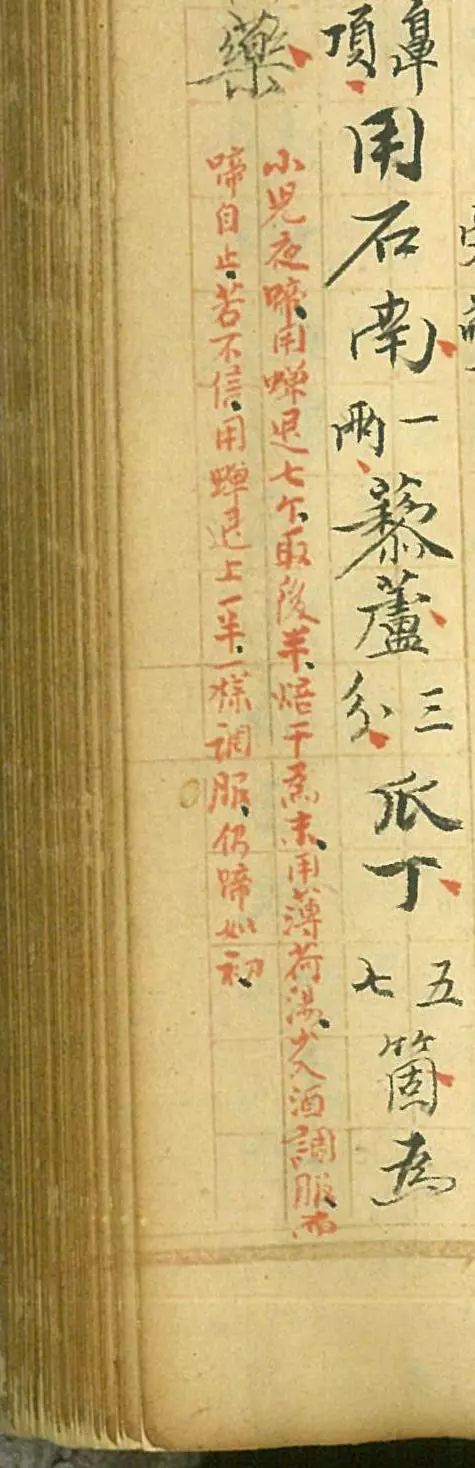 鼻項用石南一兩藜蘆三分瓜丁五七箇為
藥
小児夜啼、用蟬退七个、取後半、焙干為末、用薄荷湯、少入酒調服、而
啼自止、若不信、用蟬退上一半、一樣調服、仍啼如初、